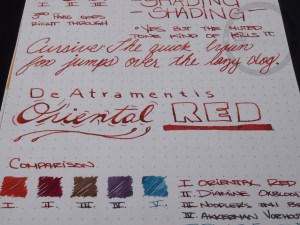 I II III
SHADING
SHADING —
3RD PASS GOES
RIGHT THROUGH
• YES BUT THE MUTED
TONE KIND OF KILLS IT
Cursive The quick brown
fox jumps over the lazy dog.
De Atramentis
Oriental RED
COMPARISON
I II III IV V
I ORIENTAL RED
II DIAMINE OXBLOO
III NOODLERS #41 BR
IV AKKERMAN